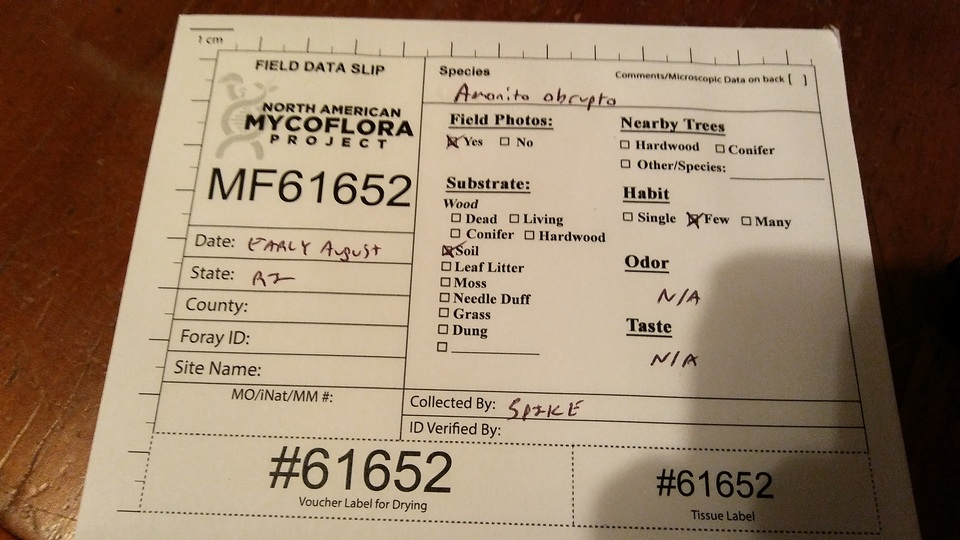 1 cm
FIELD DATA SLIP
NORTH AMERICAN
MYCOFLORA
PROJECT
MF61652
Date: EARLY August
State: RI
County:
Foray ID:
Site Name:
MO/iNat/MM #:
Species
Comments/Microscopic Data on back [ ]
Amanita abrupta
Field Photos:
☒ Yes ☐ No
Substrate:
Wood
☐ Dead ☐ Living
☐ Conifer ☐ Hardwood
☒ Soil
☐ Leaf Litter
☐ Moss
☐ Needle Duff
☐ Grass
☐ Dung
☐ ____________
Nearby Trees
☐ Hardwood ☐ Conifer
☐ Other/Species: ____________
Habit
☐ Single ☒ Few ☐ Many
Odor
N/A
Taste
N/A
Collected By: SPIKE
ID Verified By:
#61652
Voucher Label for Drying
#61652
Tissue Label